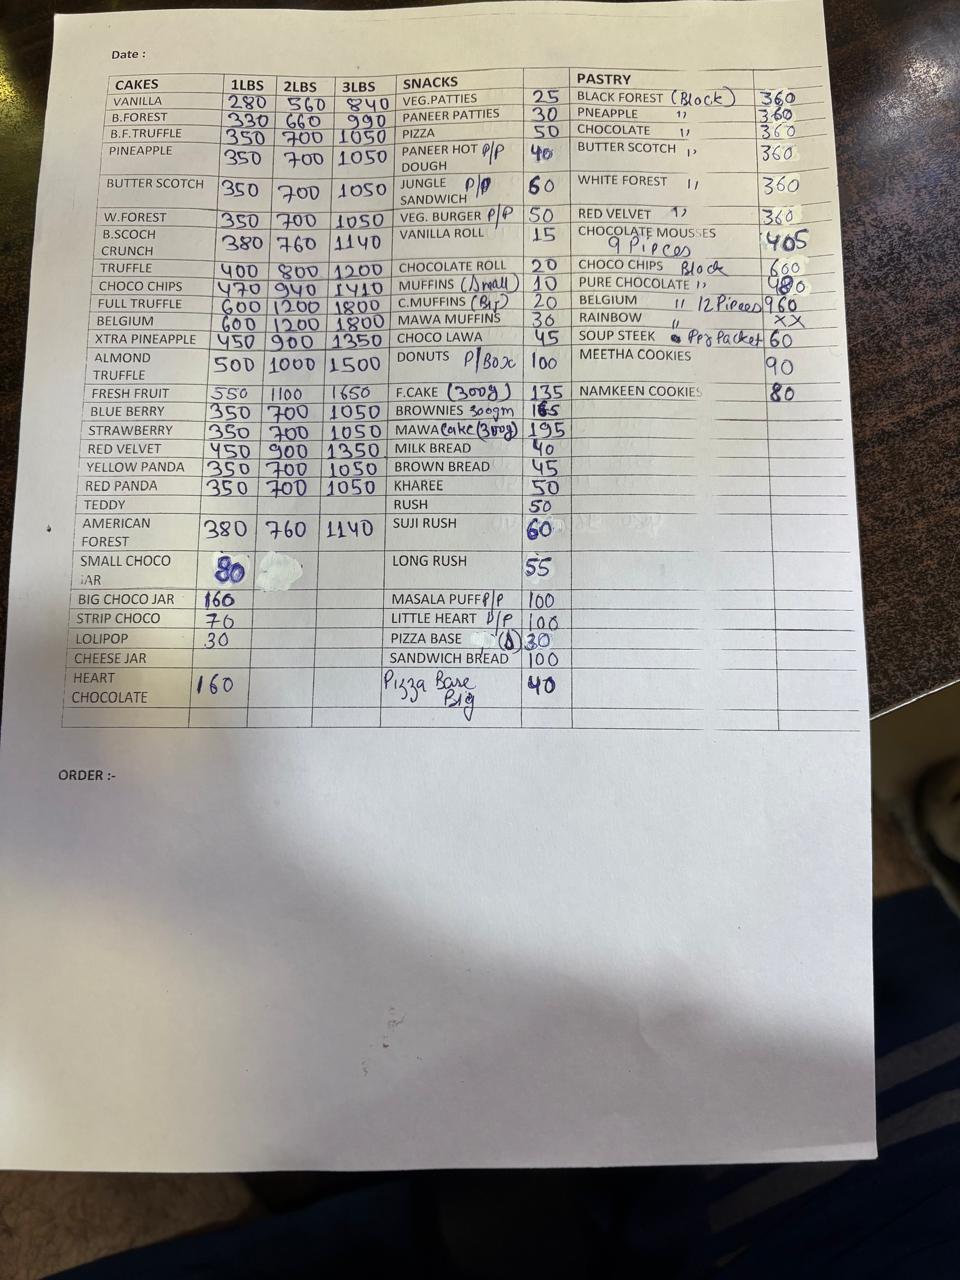 Date :
CAKES 1LBS 2LBS 3LBS SNACKS PASTRY
VANILLA 280 560 840 VEG.PATTIES 25 BLACK FOREST (Block) 360
B.FOREST 330 660 990 PANEER PATTIES 30 PNEAPPLE " 360
B.F.TRUFFLE 350 700 1050 PIZZA 50 CHOCOLATE " 360
PINEAPPLE 350 700 1050 PANEER HOT P/P 40 BUTTER SCOTCH " 360
DOUGH
BUTTER SCOTCH 350 700 1050 JUNGLE P/P 60 WHITE FOREST " 360
SANDWICH
W.FOREST 350 700 1050 VEG. BURGER P/P 50 RED VELVET " 360
B.SCOCH 380 760 1140 VANILLA ROLL 15 CHOCOLATE MOUSSES 405
CRUNCH 9 Pieces
TRUFFLE 400 800 1200 CHOCOLATE ROLL 20 CHOCO CHIPS Block 660
CHOCO CHIPS 470 940 1410 MUFFINS (Small) 10 PURE CHOCOLATE " 480
FULL TRUFFLE 600 1200 1800 C.MUFFINS (Big) 20 BELGIUM " 12 Pieces 960
BELGIUM 600 1200 1800 MAWA MUFFINS 30 RAINBOW " XX
XTRA PINEAPPLE 450 900 1350 CHOCO LAWA 45 SOUP STEEK Per Packet 60
ALMOND 500 1000 1500 DONUTS P/Box 100 MEETHA COOKIES 90
TRUFFLE
FRESH FRUIT 550 1100 1650 F.CAKE (300g) 135 NAMKEEN COOKIES 80
BLUE BERRY 350 700 1050 BROWNIES 300gm 165
STRAWBERRY 350 700 1050 MAWA Cake (300g) 195
RED VELVET 450 900 1350 MILK BREAD 40
YELLOW PANDA 350 700 1050 BROWN BREAD 45
RED PANDA 350 700 1050 KHAREE 50
TEDDY RUSH 50
AMERICAN 380 760 1140 SUJI RUSH 60
FOREST
SMALL CHOCO 80 LONG RUSH 55
JAR
BIG CHOCO JAR 160 MASALA PUFF P/P 100
STRIP CHOCO 70 LITTLE HEART P/P 100
LOLIPOP 30 PIZZA BASE (S) 30
CHEESE JAR SANDWICH BREAD 100
HEART 160 Pizza Base 40
CHOCOLATE Big
ORDER :-